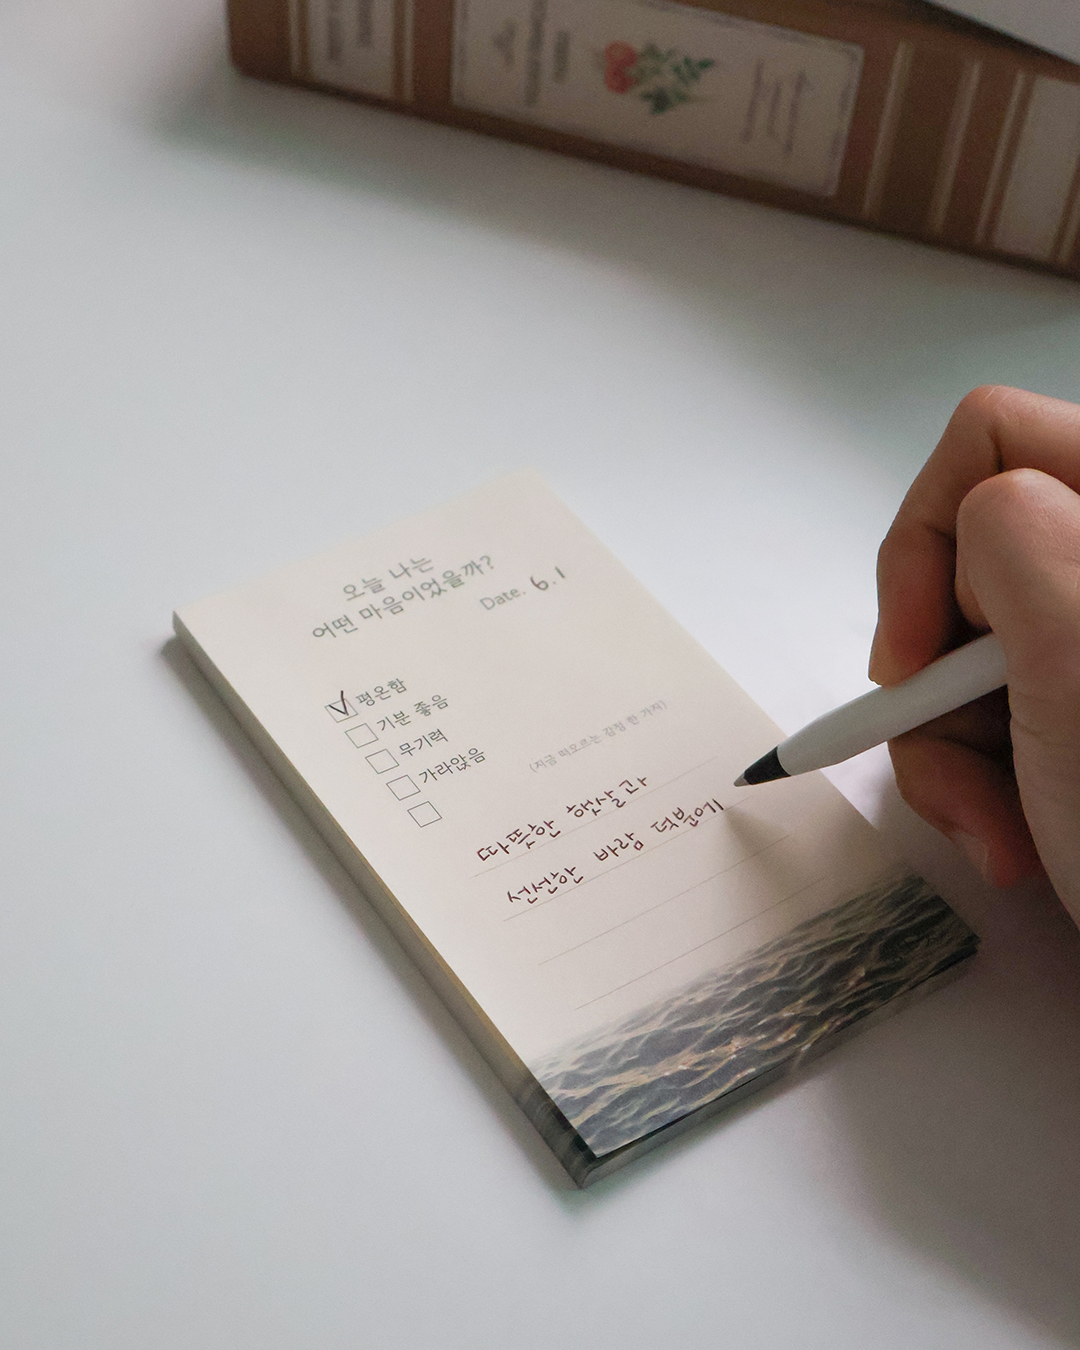 오늘 나는
어떤 마음이었을까?
Date. 6.1
평온함
기분 좋음
무기력
가라앉음
(지금 떠오르는 감정 한 가지)
따뜻한 햇살과
선선한 바람 덕분에